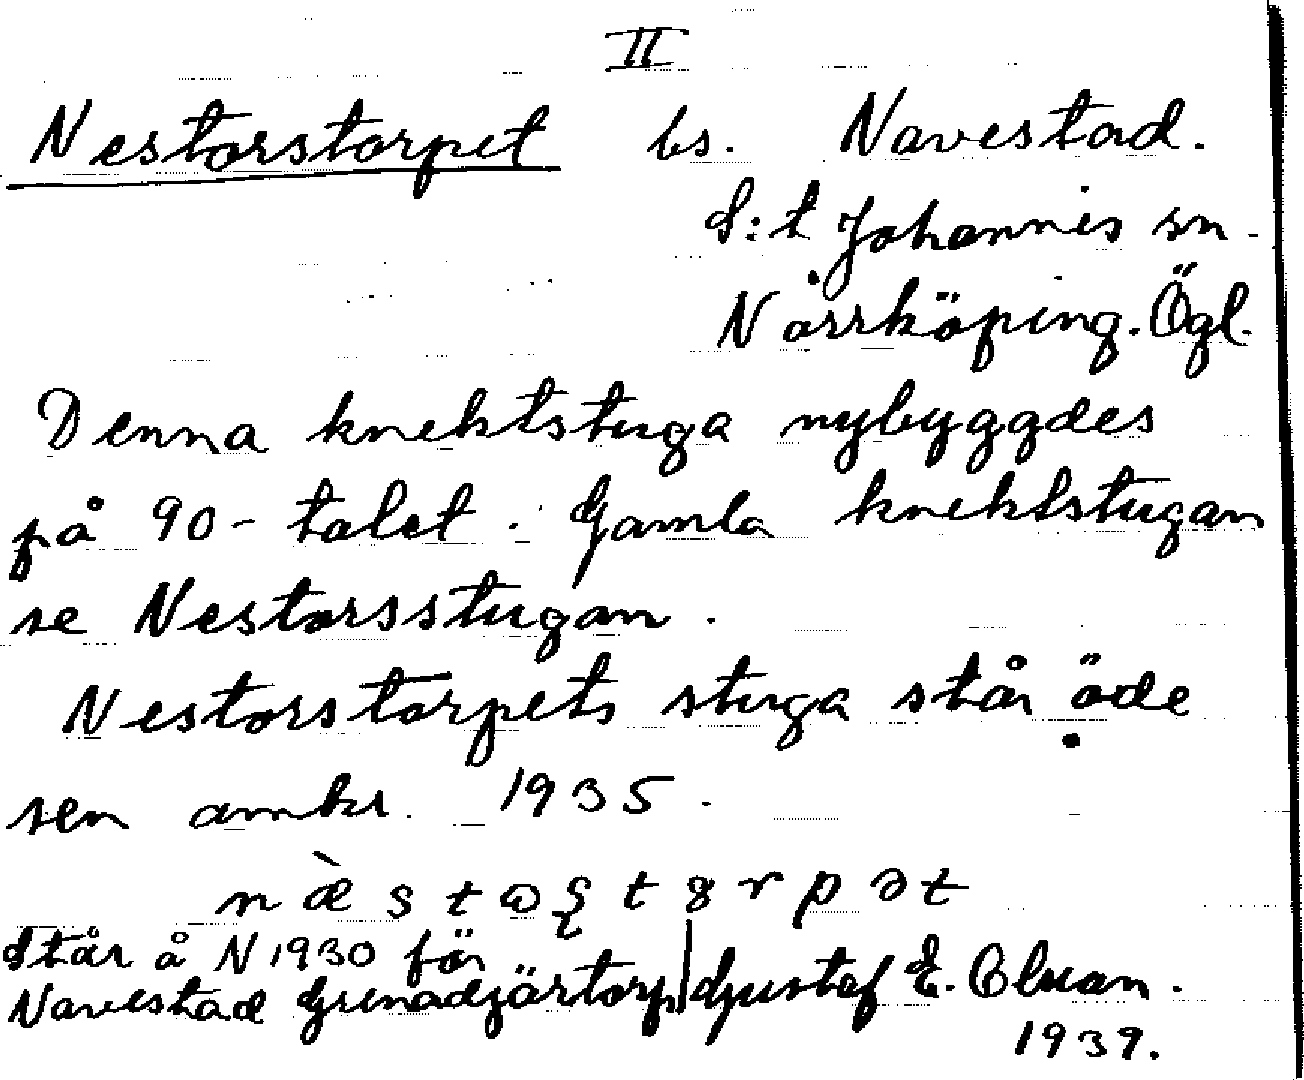 II
Nestorstorpet bs. Navestad.
S:t Johannis sn.
Norrköping. Ögl.
Denna knektstuga nybyggdes
på 90-talet. Gamla knektstugan
se Nestorsstugan.
Nestorstorpets stuga står öde
sen omkr. 1935.
Står å N 1930 för
Navestad Grenadjärtorp. Gustaf E.
1939.